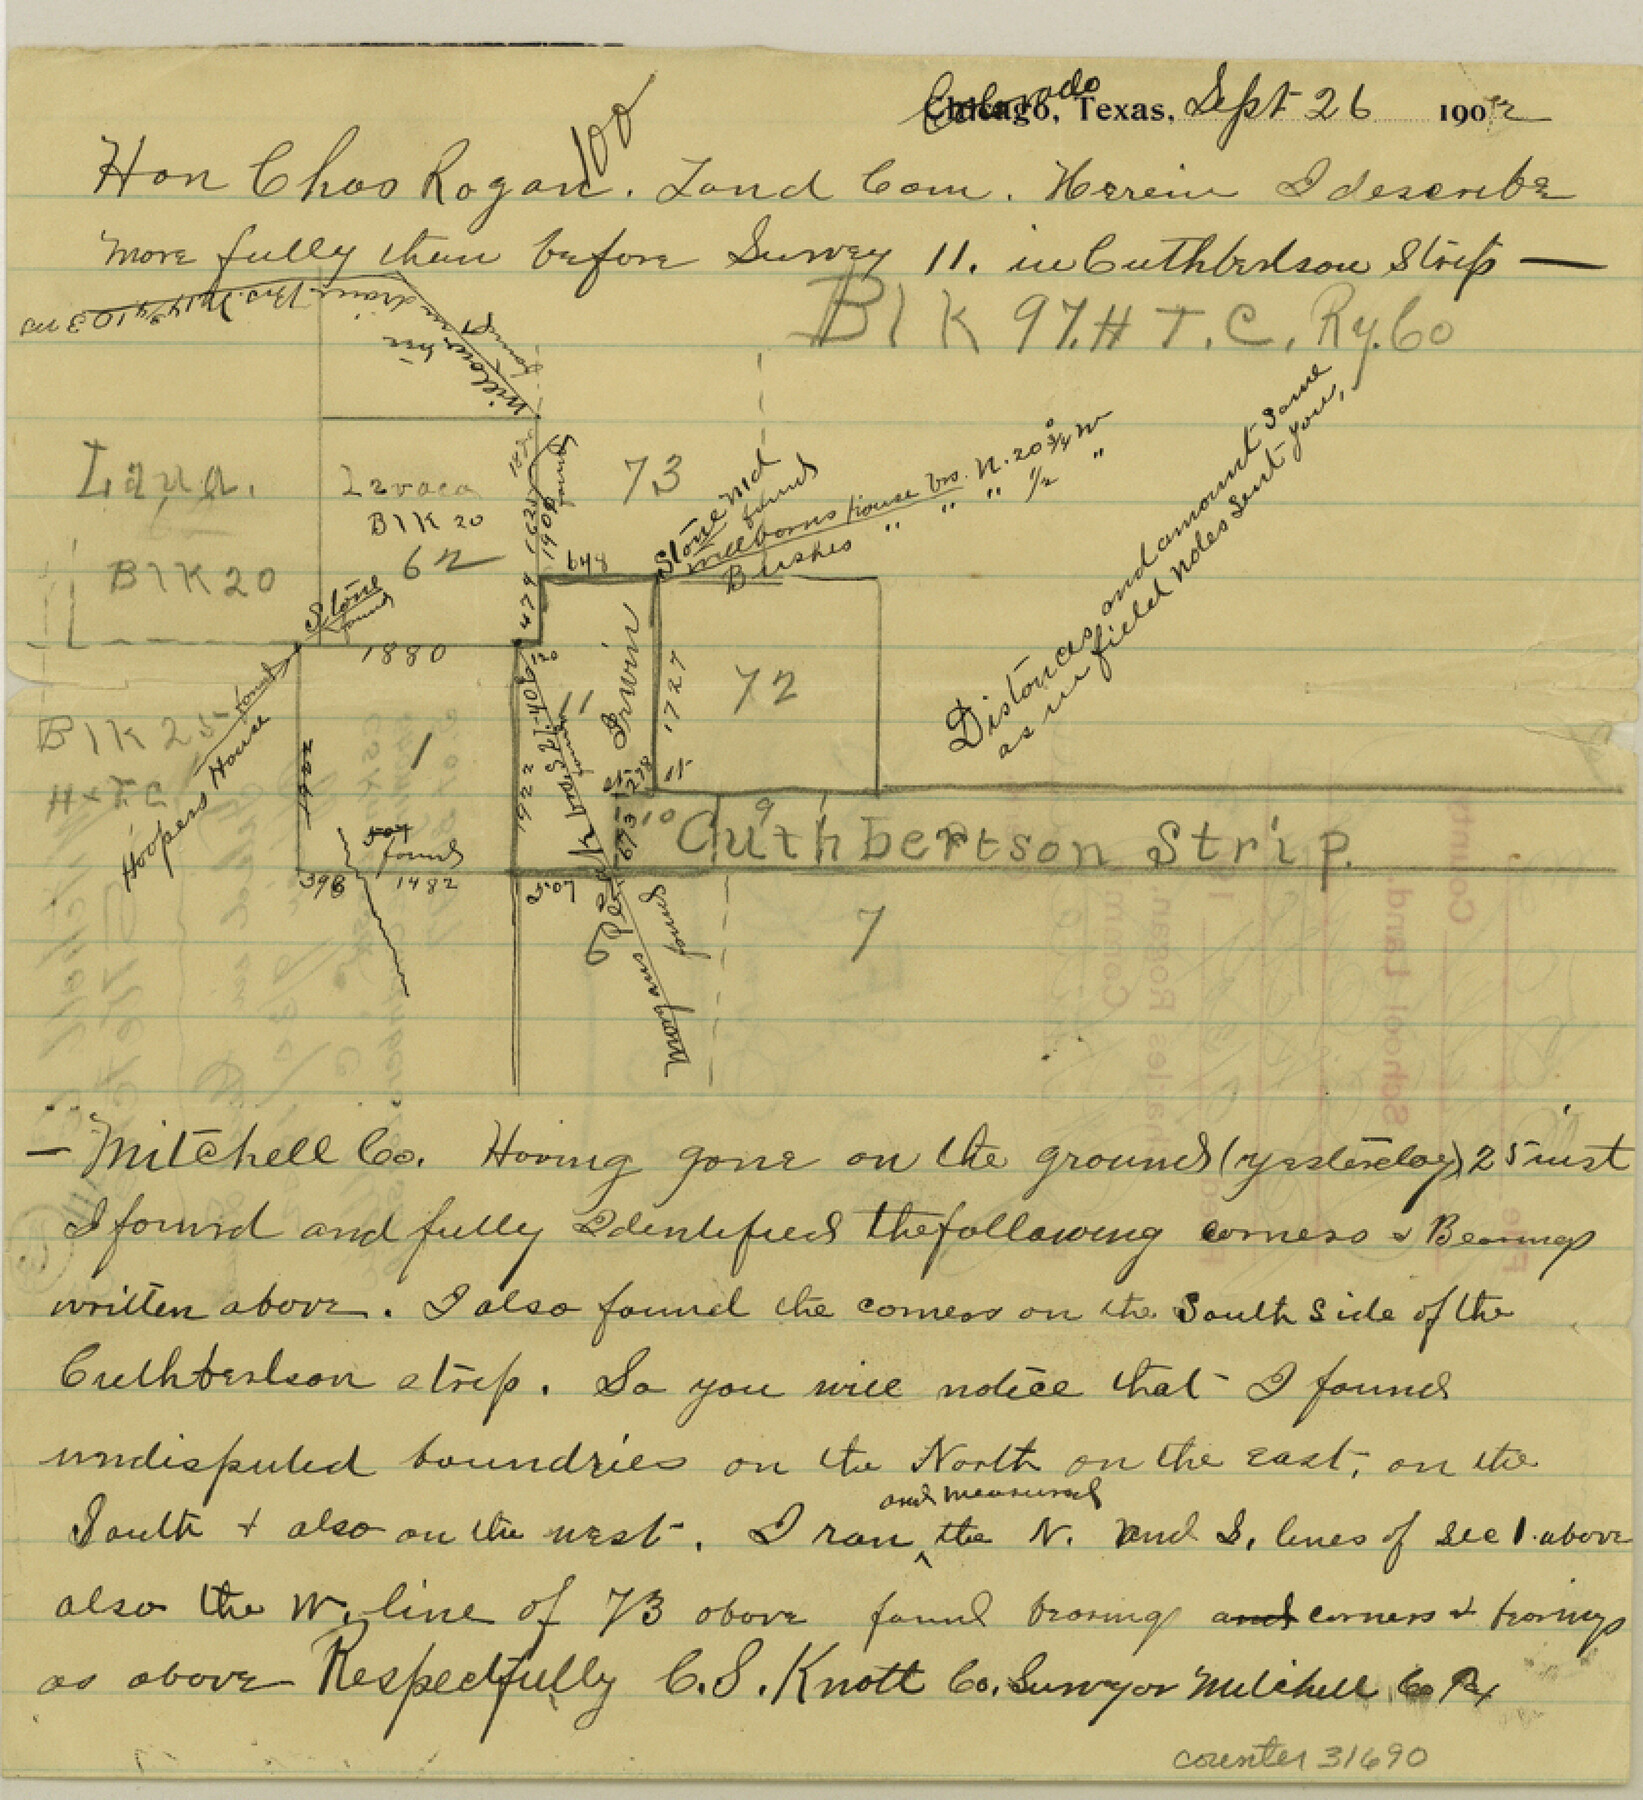 Colorado
Chicago, Texas, Sept 26 1902
100
Hon Chas Rogan. Land Com. Herein I describe
more fully then before Survey 11. in Cuthbertson Strip —
Blk 97. H T. C. Ry. Co
Willow
found
Lava.
Blk 20
Lavaca
Blk 20
62
73
found
1900
479
648
Stone Md
found
Millborns house brs. N. 20 3/4 W
Bushes " " " 1/2 "
Distances and amount same
as in field notes sent you,
Stone
found
1880
Hoopers House
found
Blk 25
H & T C
1
1922
1922
11
Irwin
1727
72
278
673
10
9
Cuthbertson Strip.
found
398
1482
507
6
7
Morgans
found
— Mitchell Co. Having gone on the ground (yesterday) 25 inst
I found and fully Identified the following corners & Bearings
written above. I also found the corners on the South Side of the
Cuthbertson strip. So you will notice that I found
undisputed boundries on the North on the east, on the
South + also on the west. I ran and measured the N. and S. lines of Sec 1. above
also the W. line of 73 above found bearings and corners & bearings
as above Respectfully C. S. Knott Co. Surveyor Mitchell Co Tex
counter 31690